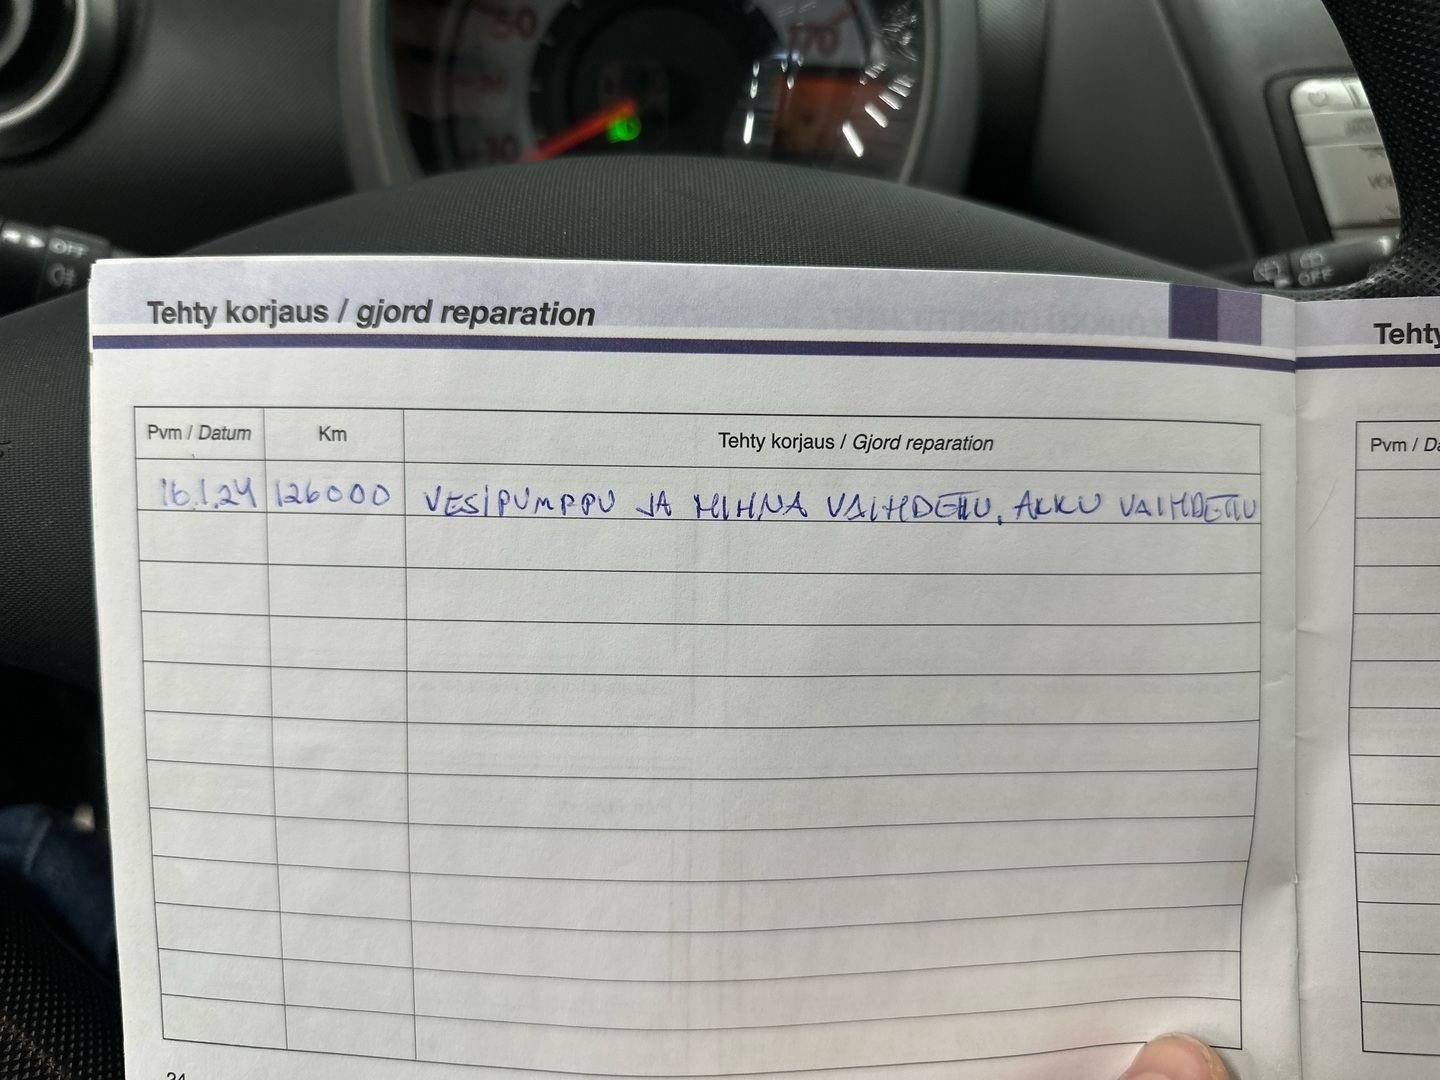 50
170
10
OFF
OFF
Tehty korjaus / gjord reparation
Tehty
Pvm / Datum Km Tehty korjaus / Gjord reparation
Pvm / Da
16.1.24 126000 VESIPUMPPU JA HIHNA VAIHDETTU, AKKU VAIHDETTU
24